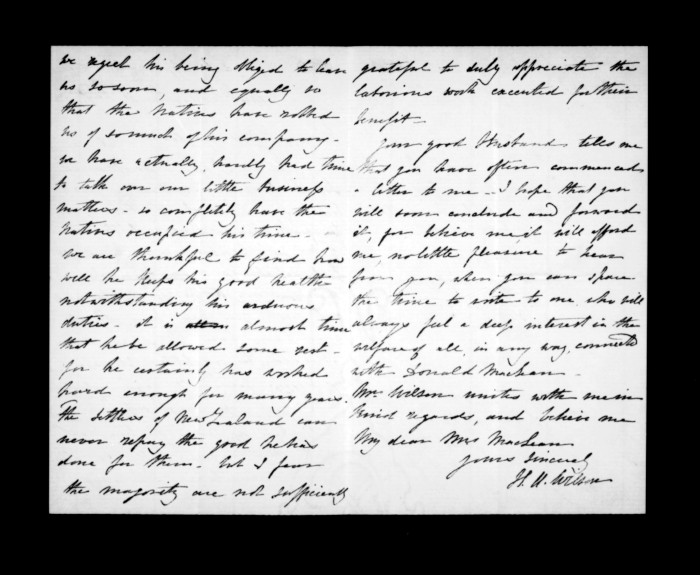 we regret his being obliged to leave
us so soon, and equally so
that the Natives have robbed
us of so much of his company -
we have actually, hardly had time
to talk over our little business
matters - so completely have the
Natives occupied his time -
we are thankful to find how
well he keeps his good health
notwithstanding his arduous
duties - it is almost time
that he be allowed some rest -
for he certainly has worked
hard enough for many years.
The settlers of New Zealand can
never repay the good he has
done for them - but I fear
the majority are not sufficiently
grateful to duly appreciate the
laborious work executed for their
benefit -
Your good Husband tells me
that you have often commenced
a letter to me - I hope that you
will soon conclude and forward
it, for believe me, it will afford
me, no little pleasure to hear
from you, when you can spare
the time to write to me, who will
always feel a deep interest in the
welfare of all, in any way, connected
with Donald MacLean -
Mr Wilson unites with me in
kind regards, and believe me
My dear Mrs MacLean
Yours sincerely
Wilson